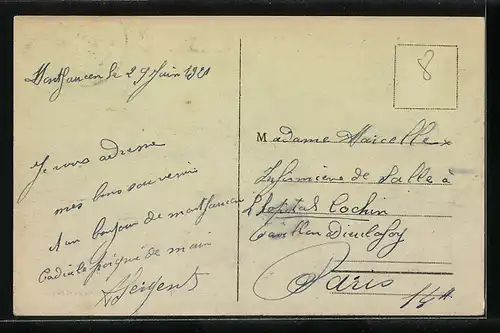 Montfaucon le 29 Juin 1920
8
Je vous adresse
mes bons souvenirs
et un bonjour de montfaucon
Cordiale poignée de main
Sergent
Madame Marcelle
Infirmière de Salle à
L'hopital Cochin
Pavillon Dieulafoy
Paris 14